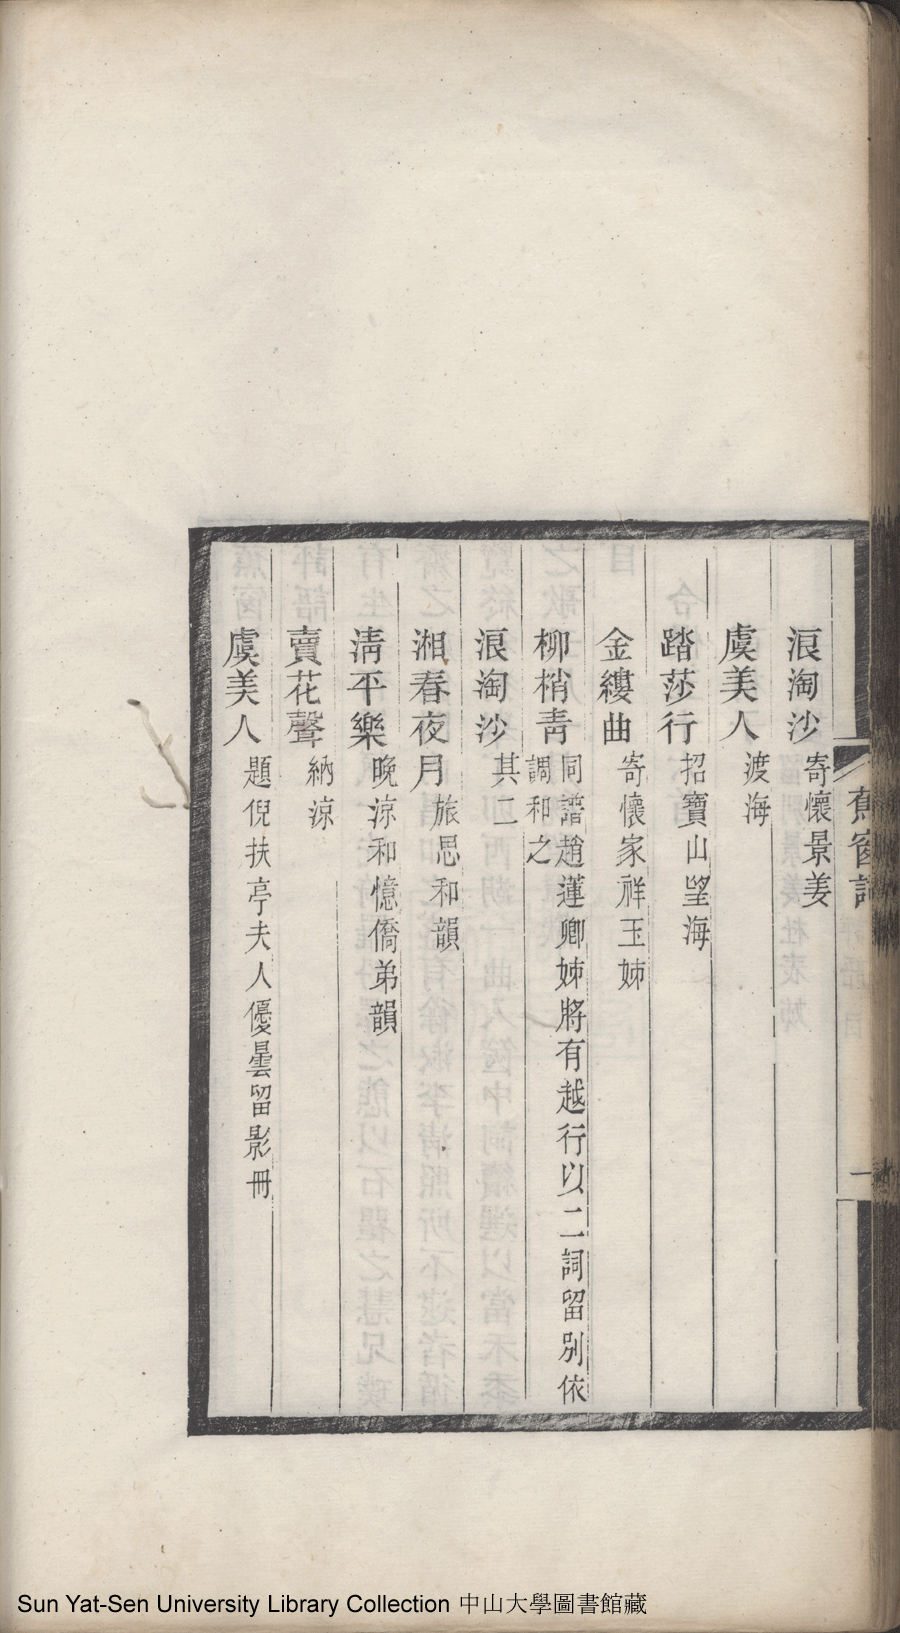 浪淘沙 寄懷景姜
虞美人 渡海
踏莎行 招寶山望海
金縷曲 寄懷家祥玉姊
柳梢青 同譜趙蓮卿姊將有越行以二詞留別依
調和之
浪淘沙 其二
湘春夜月 旅思和韻
清平樂 晚涼和憶僑弟韻
賣花聲 納涼
虞美人 題倪扶亭夫人優曇留影冊
蕉窗詞
一
Sun Yat-Sen University Library Collection 中山大學圖書館藏